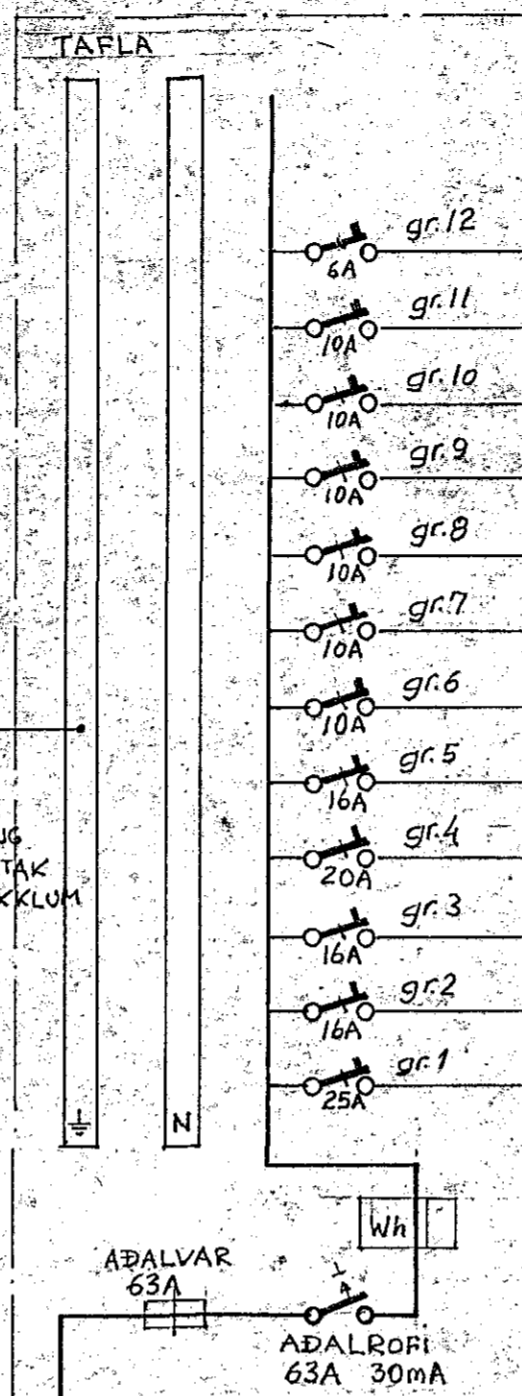 TAFLA
gr.12
6A
gr.11
10A
gr.10
10A
gr.9
10A
gr.8
10A
gr.7
10A
gr.6
10A
gr.5
16A
gr.4
20A
TAK
KKLUM
gr.3
16A
gr.2
16A
gr.1
25A
N
Wh
AÐALVAR
63A
AÐALROFI
63A 30mA